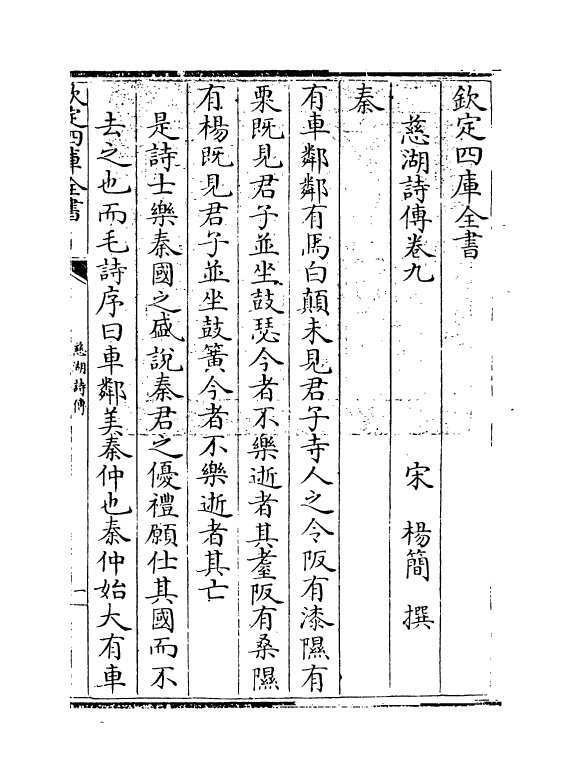 欽定四庫全書
慈湖詩傳卷九
宋 楊簡 撰
秦
有車鄰鄰有馬白顛未見君子寺人之令阪有漆隰有
栗既見君子並坐鼓瑟今者不樂逝者其耋阪有桑隰
有楊既見君子並坐鼓簧今者不樂逝者其亡
是詩士樂秦國之盛說秦君之優禮願仕其國而不
去之也而毛詩序曰車鄰美秦仲也秦仲始大有車
欽定四庫全書
慈湖詩傳
一